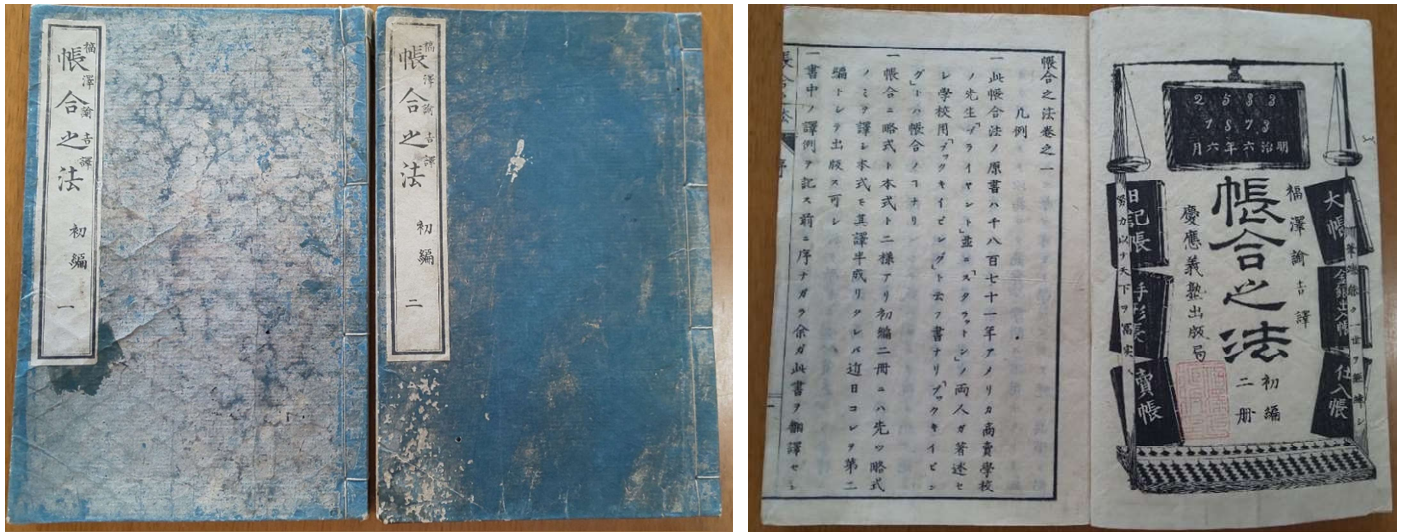 福澤諭吉譯
帳合之法 初編 一
福澤諭吉譯
帳合之法 初編 二
2533
1873
明治六年六月
大帳
金銀出入帳
仕入帳
福澤諭吉譯
帳合之法
初編
二册
慶應義塾出版局
日記帳
手形帳
賣帳
帳合之法卷之一
凡例
一此帳合法ノ原書ハ千八百七十一年アメリカ商賣學校
ノ先生「ブライヤント」並ニ「スタラットン」ノ両人ガ著述セ
シ學校用「ブックキイピング」ト云フ書ナリ「ブックキイピン
グ」トハ帳合ノヿナリ
一帳合ニ略式ト本式ト二樣アリ初編二冊ニハ先ツ略式
ノミヲ譯シ本式モ其譯半成リタレバ近日コレヲ第二
編トシテ出版ス可シ
一書中ノ譯例ヲ記ス前ニ序ナガラ余ガ此書ヲ飜譯セシ